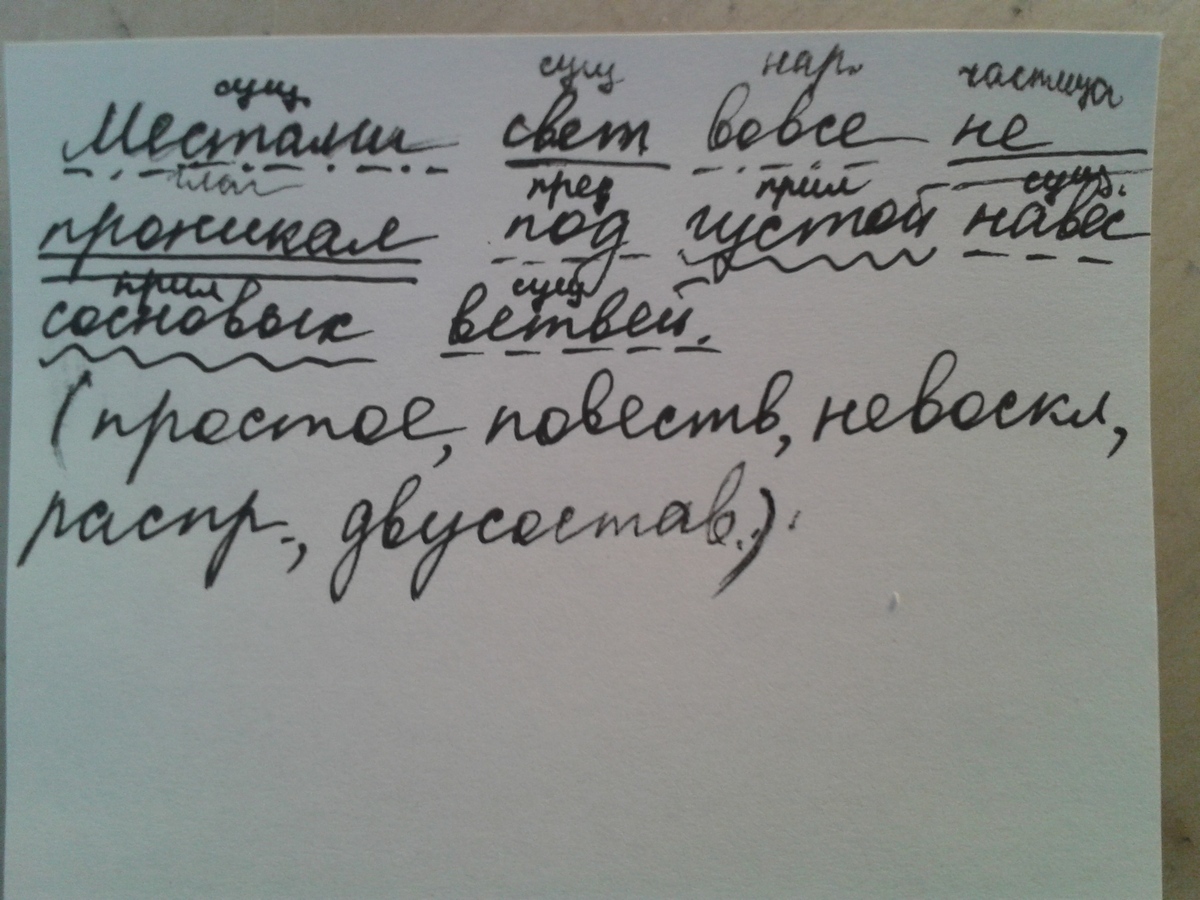 сущ. сущ нар. частица
Местами свет вовсе не
глаг пред прил сущ.
проникал под густой навес
прил сущ
сосновых ветвей.
(простое, повеств, невоскл,
распр., двусостав.).